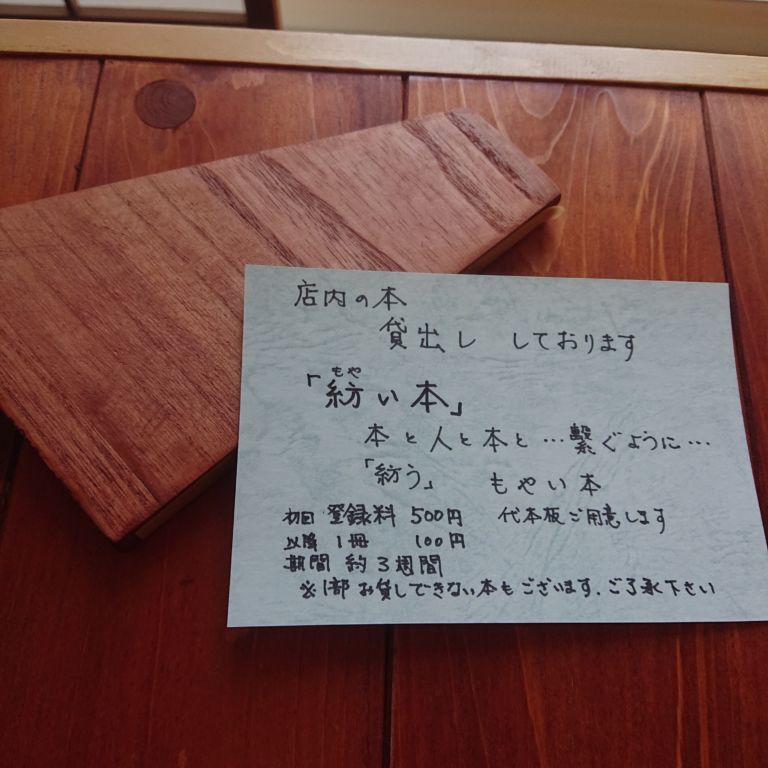 店内の本
貸出し しております
もや
「紡い本」
本と人と本と…繋ぐように…
「紡う」 もやい本
初回 登録料 500円 代本板ご用意します
以降 1冊 100円
期間 約3週間
※1部お貸しできない本もございます、ご了承下さい